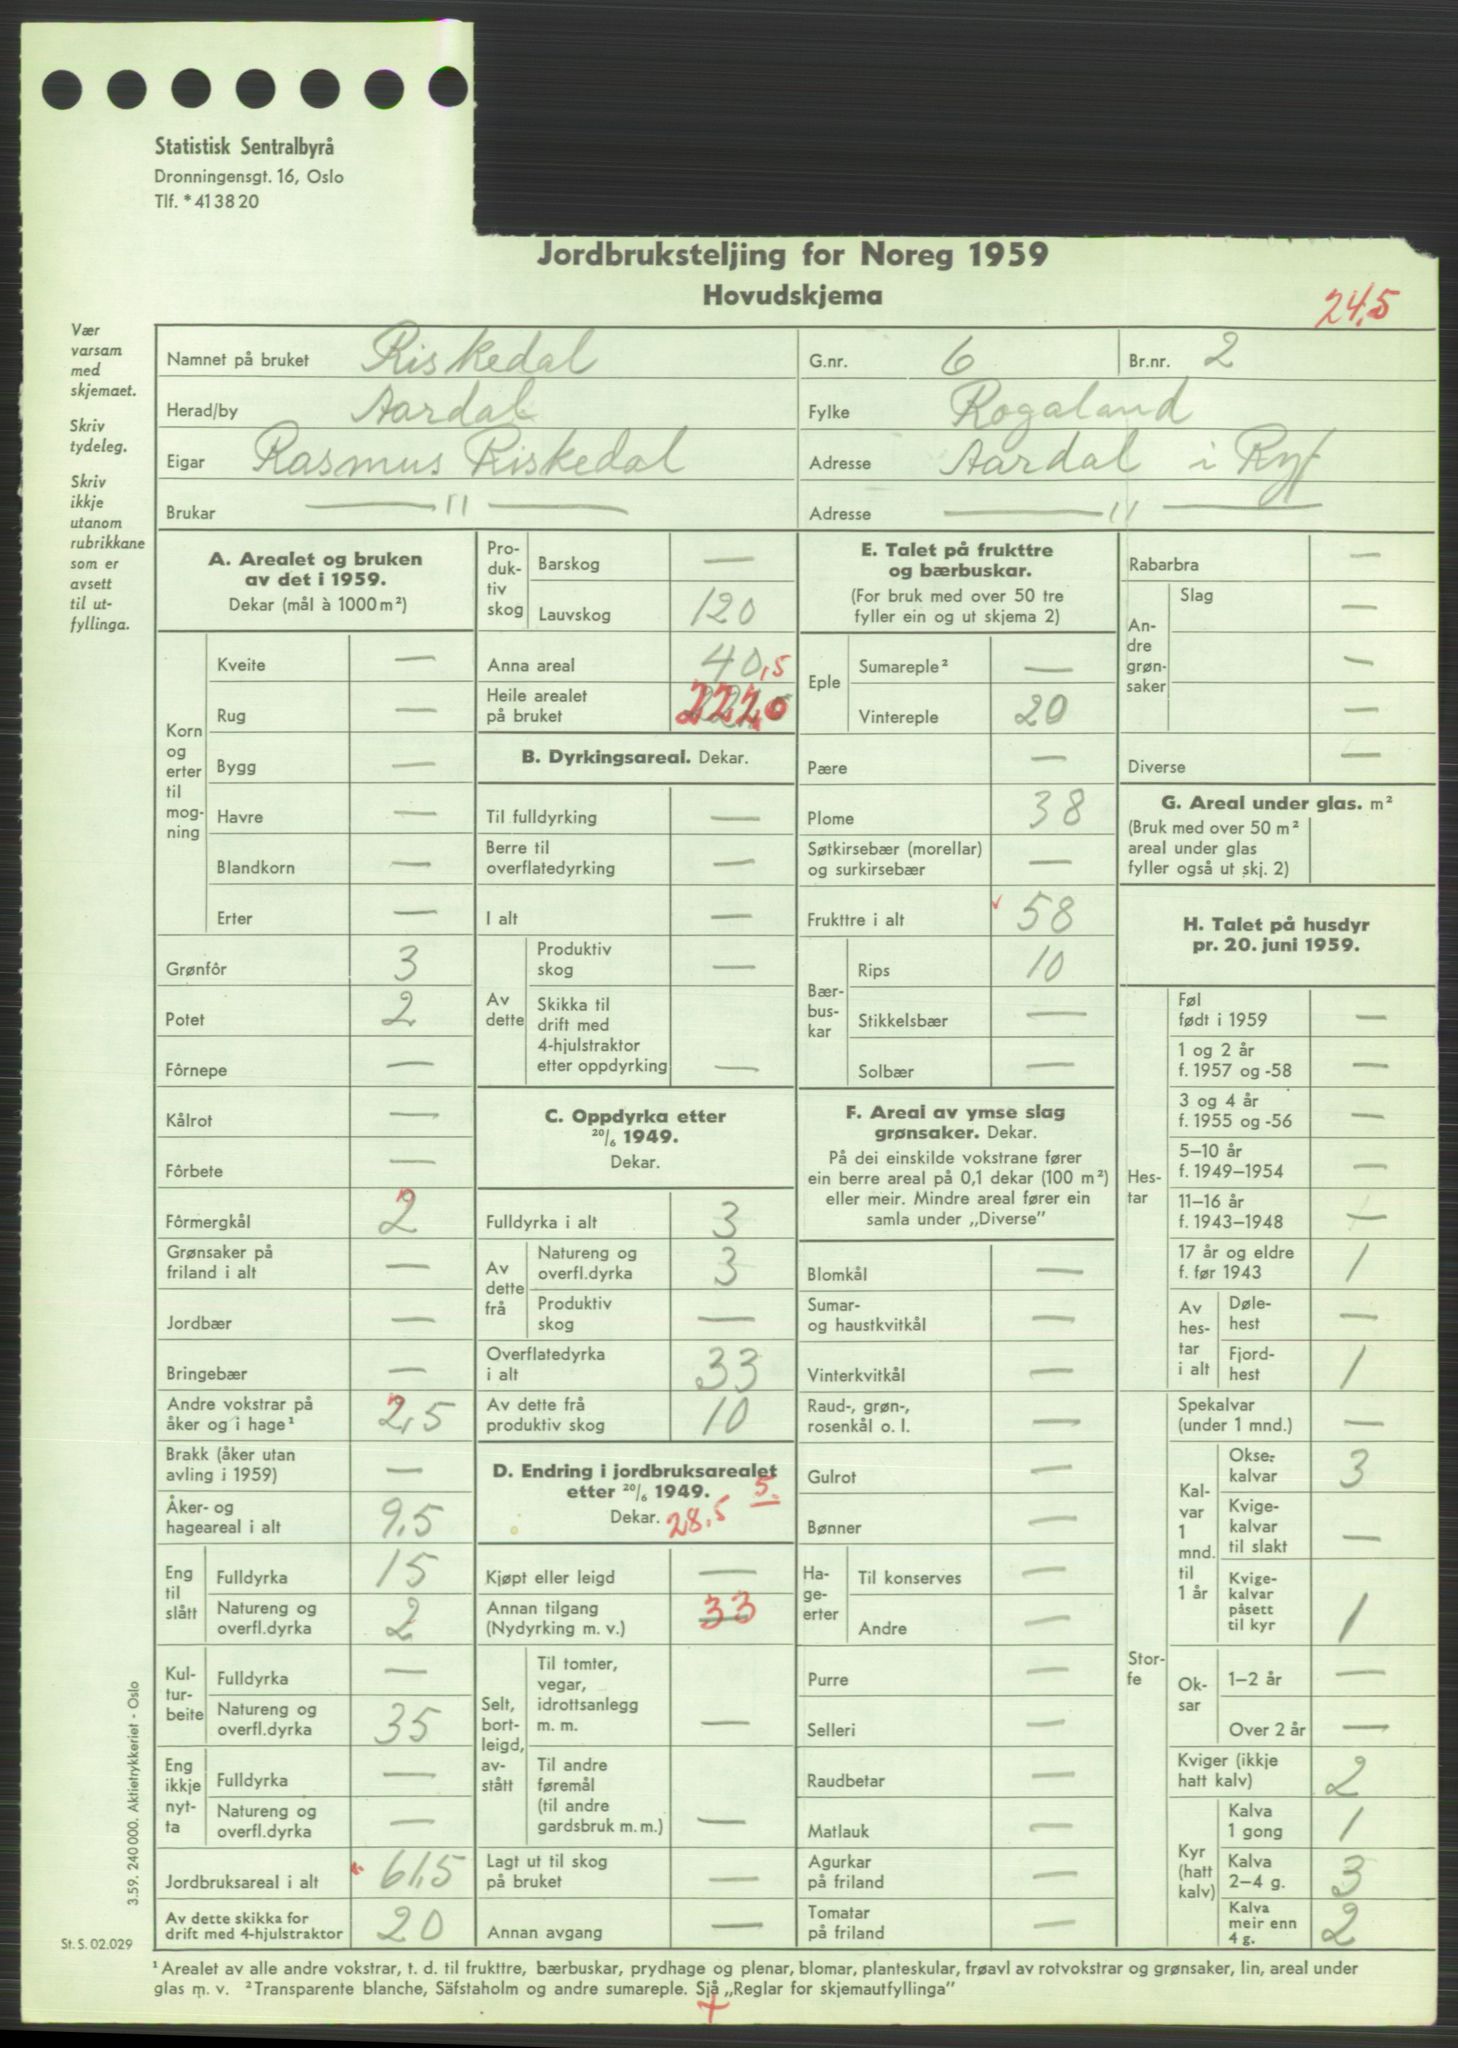 Statistisk Sentralbyrå
Dronningensgt. 16, Oslo
Tlf. * 41 38 20
Jordbruksteljing for Noreg 1959
Hovudskjema
24,5
Vær
varsam
med
skjemaet.
Skriv
tydeleg.
Skriv
ikkje
utanom
rubrikkane
som er
avsett
til ut-
fyllinga.
Namnet på bruket Riskedal G.nr. 6 Br.nr. 2
Herad/by Aardal Fylke Rogaland
Eigar Rasmus Riskedal Adresse Aardal i Ryf
Brukar — " — Adresse — " —
A. Arealet og bruken
av det i 1959.
Dekar (mål à 1000 m²)
Korn
og
erter
til
mog-
ning
Kveite —
Rug —
Bygg —
Havre —
Blandkorn —
Erter —
Grønfôr 3
Potet 2
Fôrnepe —
Kålrot —
Fôrbete —
Fôrmergkål 2
Grønsaker på
friland i alt —
Jordbær —
Bringebær —
Andre vokstrar på
åker og i hage¹ 2,5
Brakk (åker utan
avling i 1959) —
Åker- og
hageareal i alt 9,5
Eng
til
slått
Fulldyrka 15
Natureng og
overfl.dyrka 2
Kul-
tur-
beite
Fulldyrka —
Natureng og
overfl.dyrka 35
Eng
ikkje
nyt-
ta
Fulldyrka —
Natureng og
overfl.dyrka —
Jordbruksareal i alt 61,5
Av dette skikka for
drift med 4-hjulstraktor 20
Pro-
duk-
tiv
skog
Barskog —
Lauvskog 120
Anna areal 40,5
Heile arealet
på bruket 222,0
B. Dyrkingsareal. Dekar.
Til fulldyrking —
Berre til
overflatedyrking —
I alt —
Av
dette
Produktiv
skog —
Skikka til
drift med
4-hjulstraktor
etter oppdyrking —
C. Oppdyrka etter
20/6 1949.
Dekar.
Fulldyrka i alt 3
Av
dette
frå
Natureng og
overfl.dyrka 3
Produktiv
skog —
Overflatedyrka
i alt 33
Av dette frå
produktiv skog 10
D. Endring i jordbruksarealet
etter 20/6 1949. 5.
Dekar. 28,5
Kjøpt eller leigd —
Annan tilgang
(Nydyrking m. v.) 33
Selt,
bort-
leigd,
av-
stått
Til tomter,
vegar,
idrottsanlegg
m. m. —
Til andre
føremål
(til andre
gardsbruk m. m.) —
Lagt ut til skog
på bruket —
Annan avgang —
E. Talet på frukttre
og bærbuskar.
(For bruk med over 50 tre
fyller ein og ut skjema 2)
Eple
Sumareple² —
Vintereple 20
Pære —
Plome 38
Søtkirsebær (morellar)
og surkirsebær —
Frukttre i alt 58
Bær-
bus-
kar
Rips 10
Stikkelsbær —
Solbær —
F. Areal av ymse slag
grønsaker. Dekar.
På dei einskilde vokstrane fører
ein berre areal på 0,1 dekar (100 m²)
eller meir. Mindre areal fører ein
samla under „Diverse”
Blomkål —
Sumar-
og haustkvitkål —
Vinterkvitkål —
Raud-, grøn-,
rosenkål o. l. —
Gulrot —
Bønner —
Ha-
ge-
erter
Til konserves —
Andre —
Purre —
Selleri —
Raudbetar —
Matlauk —
Agurkar
på friland —
Tomatar
på friland —
Rabarbra —
An-
dre
grøn-
saker
Slag —
—
—
Diverse —
G. Areal under glas. m²
(Bruk med over 50 m²
areal under glas
fyller også ut skj. 2)
H. Talet på husdyr
pr. 20. juni 1959.
Hes-
tar
Føl
født i 1959 —
1 og 2 år
f. 1957 og -58 —
3 og 4 år
f. 1955 og -56 —
5–10 år
f. 1949–1954 —
11–16 år
f. 1943–1948 —
17 år og eldre
f. før 1943 1
Av
hes-
tar
i alt
Døle-
hest —
Fjord-
hest 1
Stor-
fe
Spekalvar
(under 1 mnd.) —
Kal-
var
1
mnd.
til
1 år
Okse-
kalvar 3
Kvige-
kalvar
til slakt —
Kvige-
kalvar
påsett
til kyr 1
Ok-
sar
1–2 år —
Over 2 år —
Kviger (ikkje
hatt kalv) 2
Kyr
(hatt
kalv)
Kalva
1 gong 1
Kalva
2–4 g. 3
Kalva
meir enn
4 g. 2
3.59. 240 000. Aktietrykkeriet - Oslo
St. S. 02.029
¹ Arealet av alle andre vokstrar, t. d. til frukttre, bærbuskar, prydhage og plenar, blomar, planteskular, frøavl av rotvokstrar og grønsaker, lin, areal under
glas m. v. ² Transparente blanche, Säfstaholm og andre sumareple. Sjå „Reglar for skjemautfyllinga”